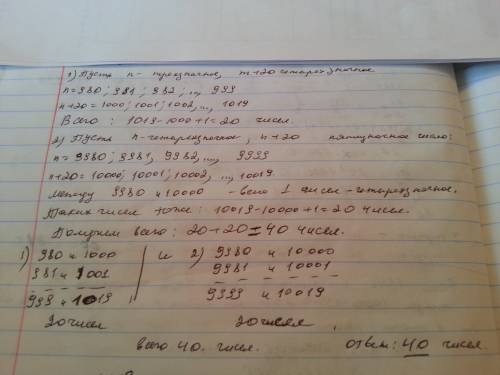 1) Пусть n- трехзначное, n+20 четырехзначное
n=980; 981; 982; ..., 999
n+20=1000; 1001; 1002, ..., 1019
Всего: 1019-1000+1=20 чисел.
2) Пусть n-четырехзначное, n+20 пятизначное число:
n=9980; 9981, 9982, ..., 9999
n+20=10000; 10001; 10002, ..., 10019
Между 9980 и 10000 -всего 1 чисел-четырехзначное.
Таких чисел тоже: 10019-10000+1=20 чисел.
Получим всего: 20+20=40 чисел.
1) 980 и 1000 и 2) 9980 и 10000
981 и 1001 9981 и 10001
999 и 1019 9999 и 10019
20 чисел 20 чисел
всего 40. чисел. ответ: 40 чисел